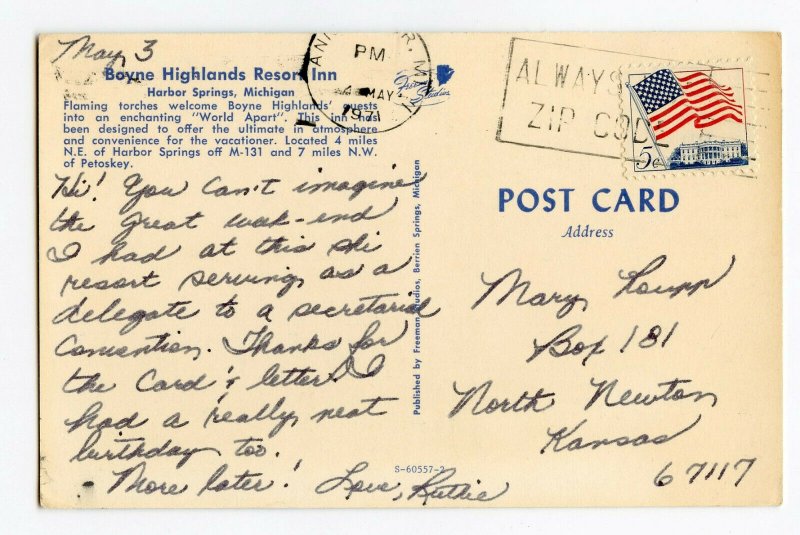 May 3
Boyne Highlands Resort Inn
Harbor Springs, Michigan
Flaming torches welcome Boyne Highlands' guests
into an enchanting "World Apart". This inn has
been designed to offer the ultimate in atmosphere
and convenience for the vacationer. Located 4 miles
N.E. of Harbor Springs off M-131 and 7 miles N.W.
of Petoskey.
Hi! You can't imagine
the great week-end
I had at this ski
resort serving as a
delegate to a secretarial
Convention. Thanks for
the Card & letter! I
had a really neat
birthday too.
More later! Love, Ruthie
Published by Freeman Studios, Berrien Springs, Michigan
S-60557-2
PM
MAY
1971
ALWAYS
ZIP CODE
5c
POST CARD
Address
Mary Loupp
Box 181
North Newton
Kansas
67117